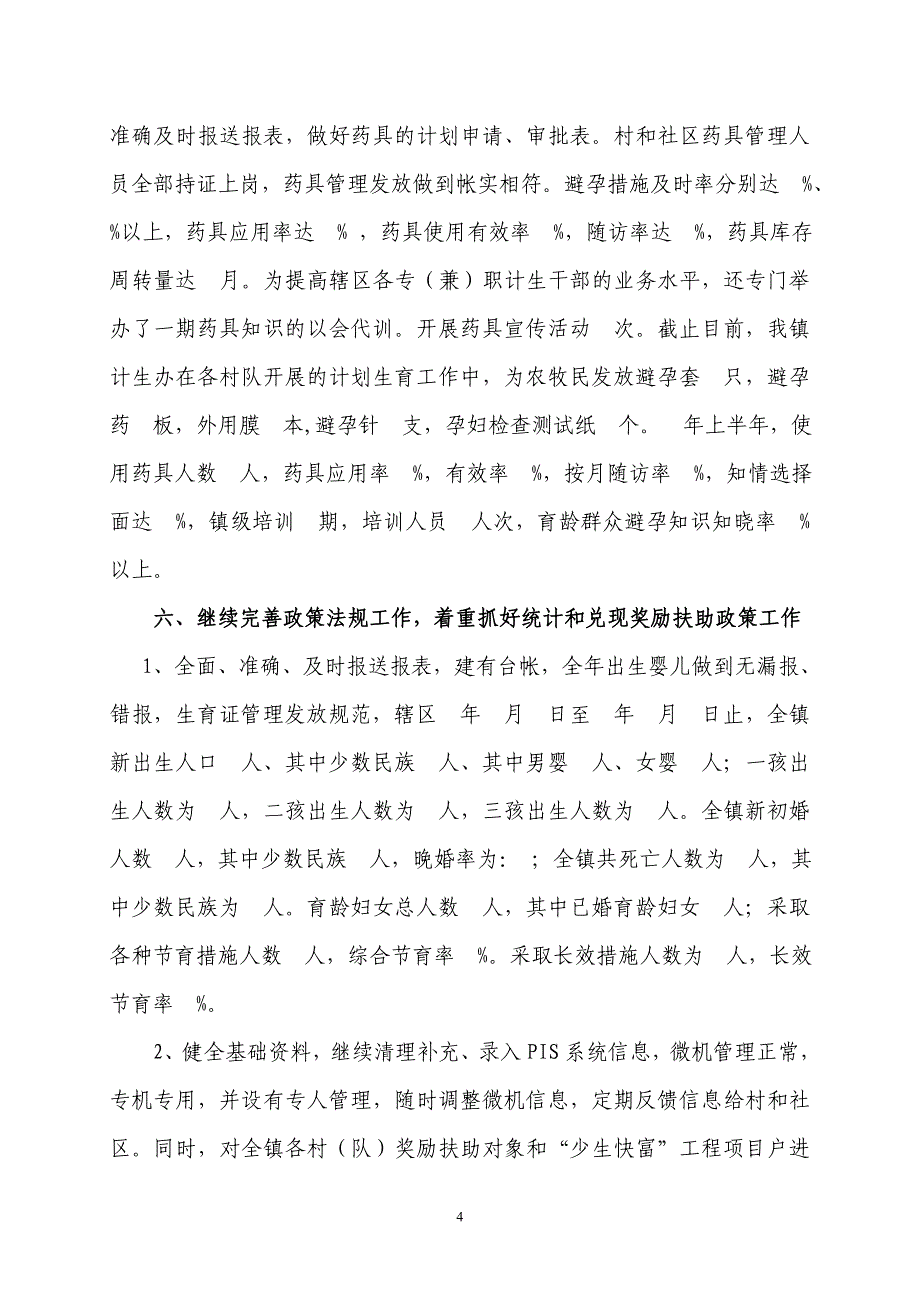 准确及时报送报表，做好药具的计划申请、审批表。村和社区药具管理人
员全部持证上岗，药具管理发放做到帐实相符。避孕措施及时率分别达　%、
%以上，药具应用率达　% ，药具使用有效率　%，随访率达　%，药具库存
周转量达　月。为提高辖区各专（兼）职计生干部的业务水平，还专门举
办了一期药具知识的以会代训。开展药具宣传活动　次。截止目前，我镇
计生办在各村队开展的计划生育工作中，为农牧民发放避孕套　只，避孕
药　板，外用膜　本,避孕针　支，孕妇检查测试纸　个。　年上半年，使
用药具人数　人，药具应用率　%，有效率　%，按月随访率　%，知情选择
面达　%，镇级培训　期，培训人员　人次，育龄群众避孕知识知晓率　%
以上。
六、继续完善政策法规工作，着重抓好统计和兑现奖励扶助政策工作
1、全面、准确、及时报送报表，建有台帐，全年出生婴儿做到无漏报、
错报，生育证管理发放规范，辖区　年　月　日至　年　月　日止，全镇
新出生人口　人、其中少数民族　人、其中男婴　人、女婴　人；一孩出
生人数为　人，二孩出生人数为　人，三孩出生人数为　人。全镇新初婚
人数　人，其中少数民族　人，晚婚率为：　；全镇共死亡人数为　人，其
中少数民族为　人。育龄妇女总人数　人，其中已婚育龄妇女　人；采取
各种节育措施人数　人，综合节育率　%。采取长效措施人数为　人，长效
节育率　%。
2、健全基础资料，继续清理补充、录入 PIS 系统信息，微机管理正常，
专机专用，并设有专人管理，随时调整微机信息，定期反馈信息给村和社
区。同时，对全镇各村（队）奖励扶助对象和“少生快富”工程项目户进
4